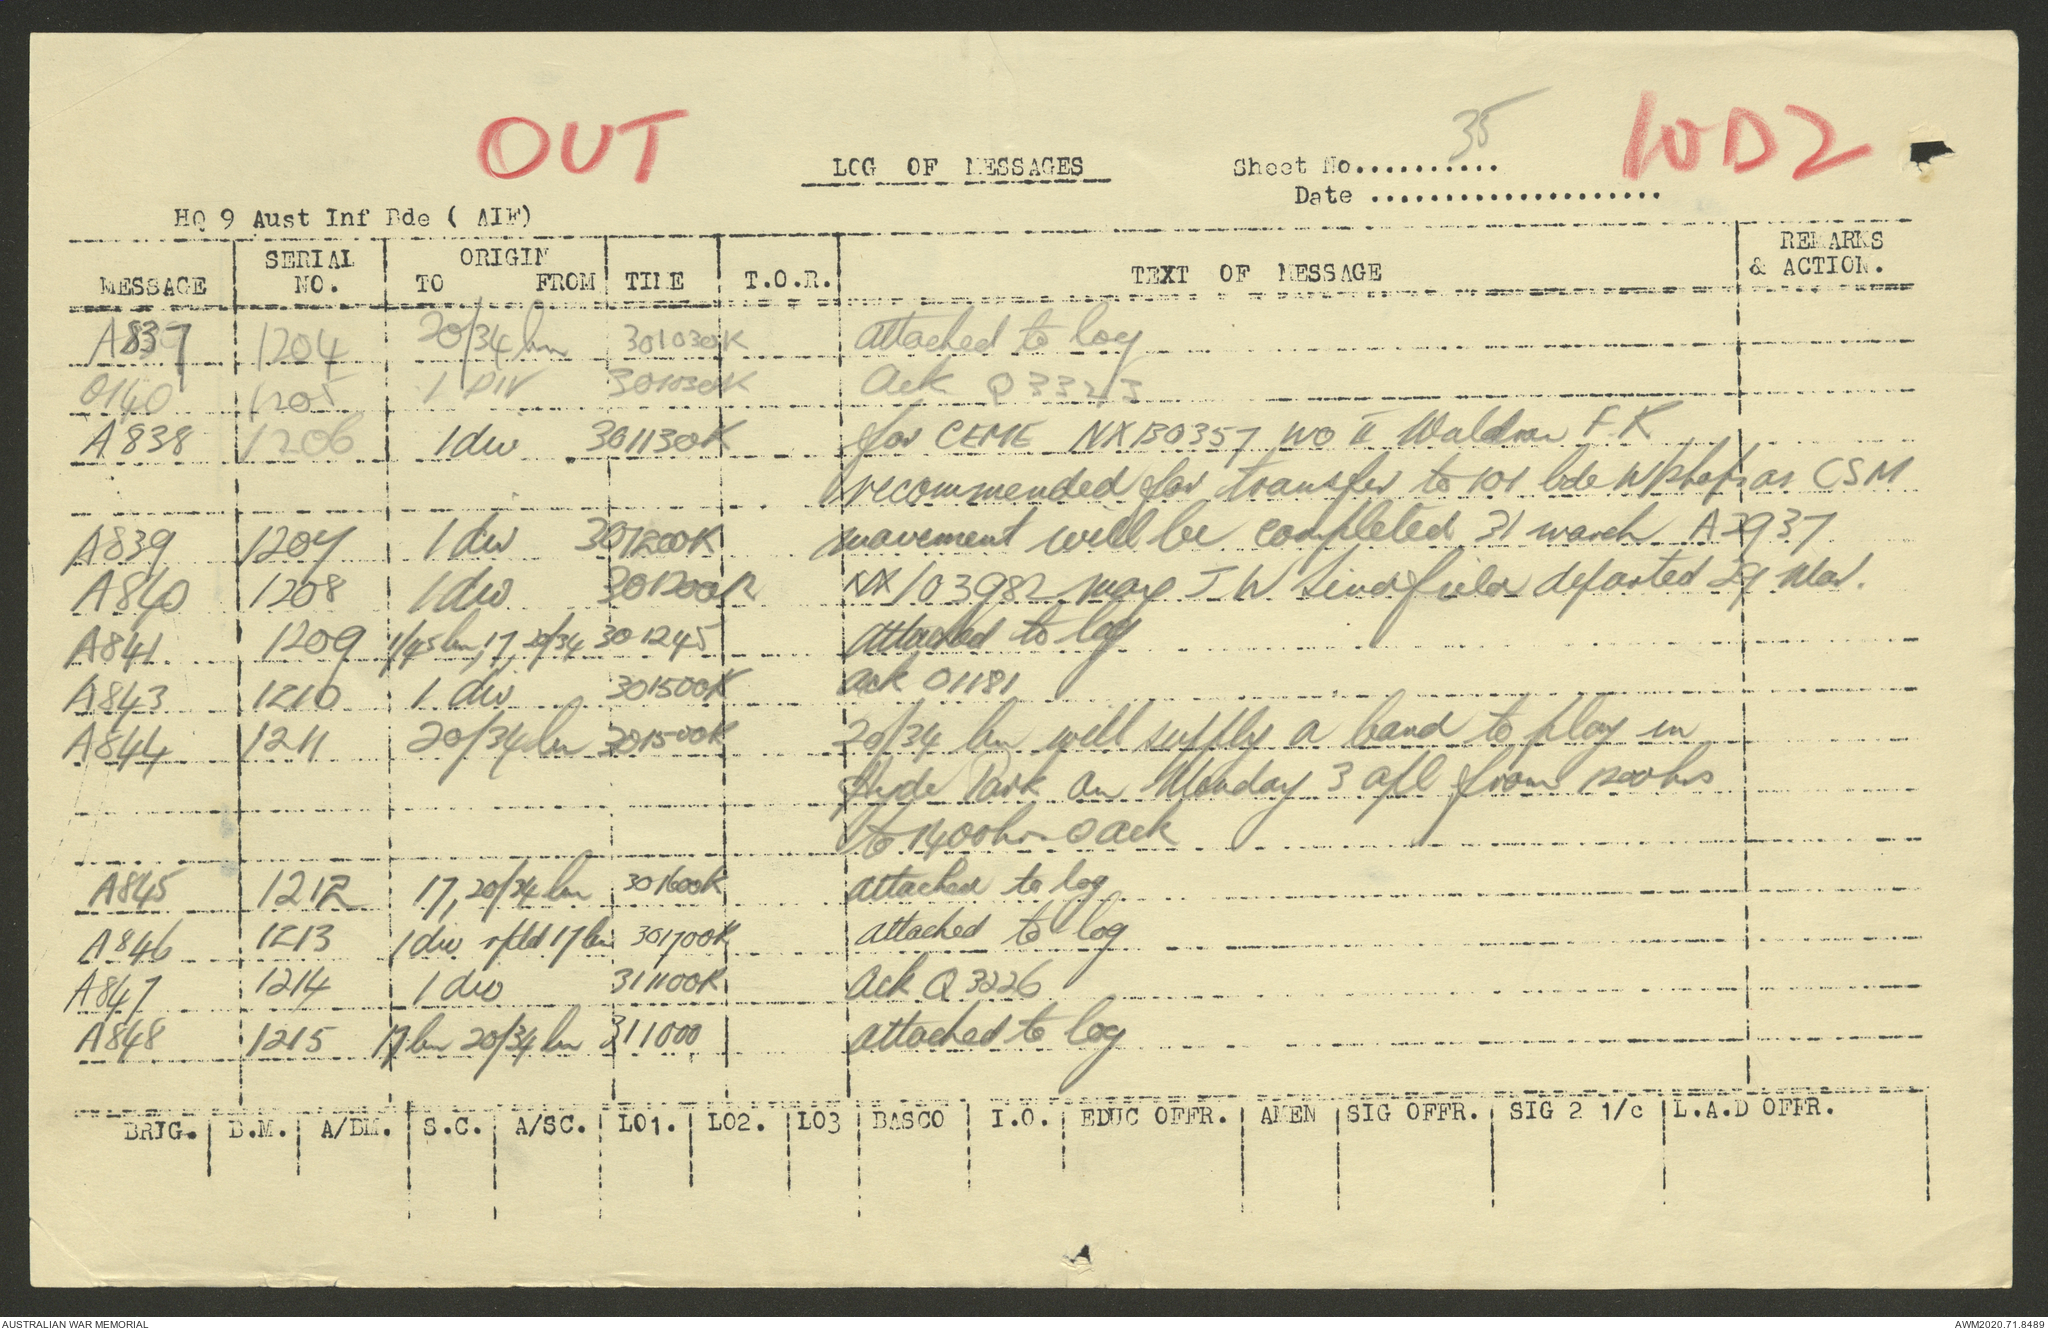 OUT
35
10D2
LOG OF MESSAGES
Sheet No..........
Date .....................
HQ 9 Aust Inf Bde ( AIF)
MESSAGE SERIAL NO. ORIGIN TO FROM TIME T.O.R. TEXT OF MESSAGE REMARKS & ACTION.
A837 1204 20/34 bn 301030K attached to log
O140 1205 1 DIV 301030K Ack Q3323
A838 1206 1 div 301130K for CEME NX130357 WO II Waldron F.K
recommended for transfer to 101 bde W/shops as CSM
A839 1207 1 div 301200K movement will be completed 31 march A3937
A840 1208 1 div 301200K NX103982 J W departed 29 Mar.
A841 1209 1/45 bn, 17, 20/34 301245 attached to log
A843 1210 1 div 301500K ack O1181
A844 1211 20/34 bn 301500K 20/34 bn will supply a band to play in
Hyde Park on Monday 3 apl from 1200hrs
to 1400hrs O ack
A845 1212 17, 20/34 bn 301600K attached to log
A846 1213 1 div rptd 17 bn 301700K attached to log
A847 1214 1 div 311100K Ack Q3226
A848 1215 17 bn 20/34 bn 311000 attached to log
BRIG. B.M. A/BM. S.C. A/SC. LO1. LO2. LO3 BASCO I.O. EDUC OFFR. AMEN SIG OFFR. SIG 2 1/c L.A.D OFFR.
AUSTRALIAN WAR MEMORIAL
AWM2020.71.8489